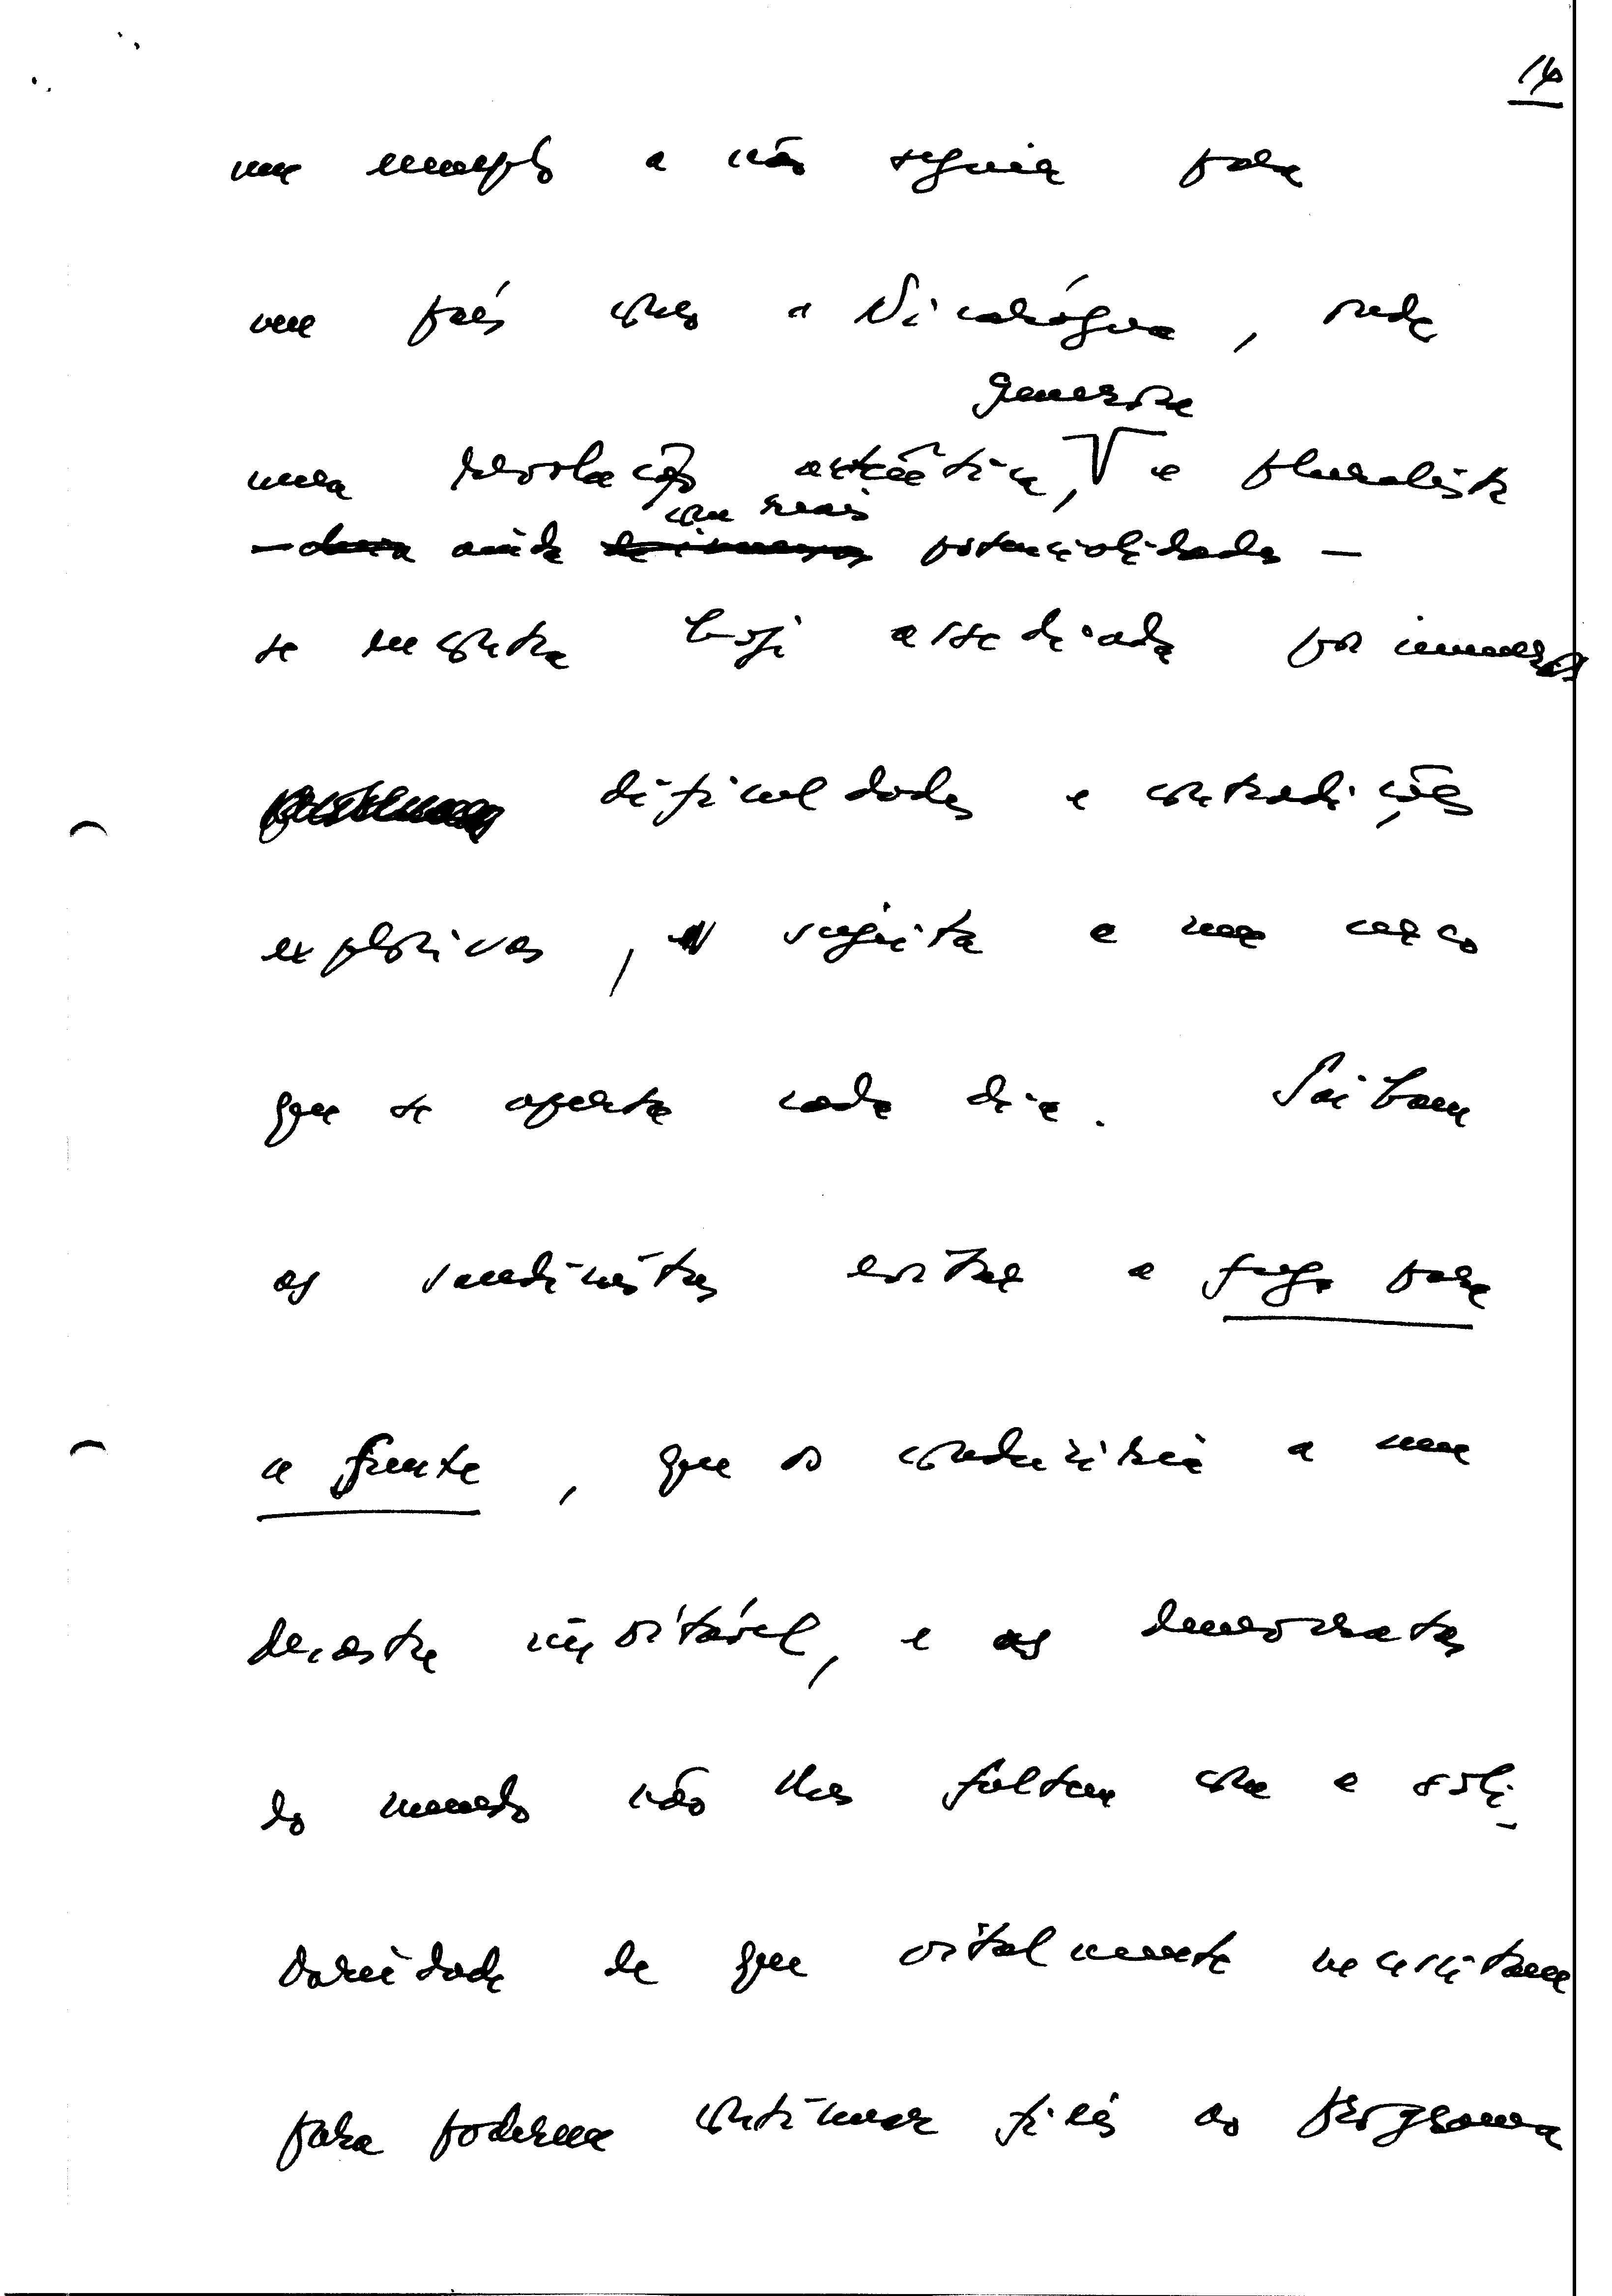 14
um exemplo a não seguir para
um país como a Nicarágua, onde
generosa
uma revolução autêntica, e pluralista
com reais
ainda potencialidades —
se encontra hoje assediada por inúmeras
dificuldades e contradições
explosivas, sujeita a um cerco
que se aperta cada dia. Saibam
os sandinistas evitar a fuga para
a frente, que os conduziria a um
desastre inevitável, e os democratas
do mundo não lhes faltem com a soli-
dariedade de que vitalmente necessitam
para poderem continuar fiéis ao programa